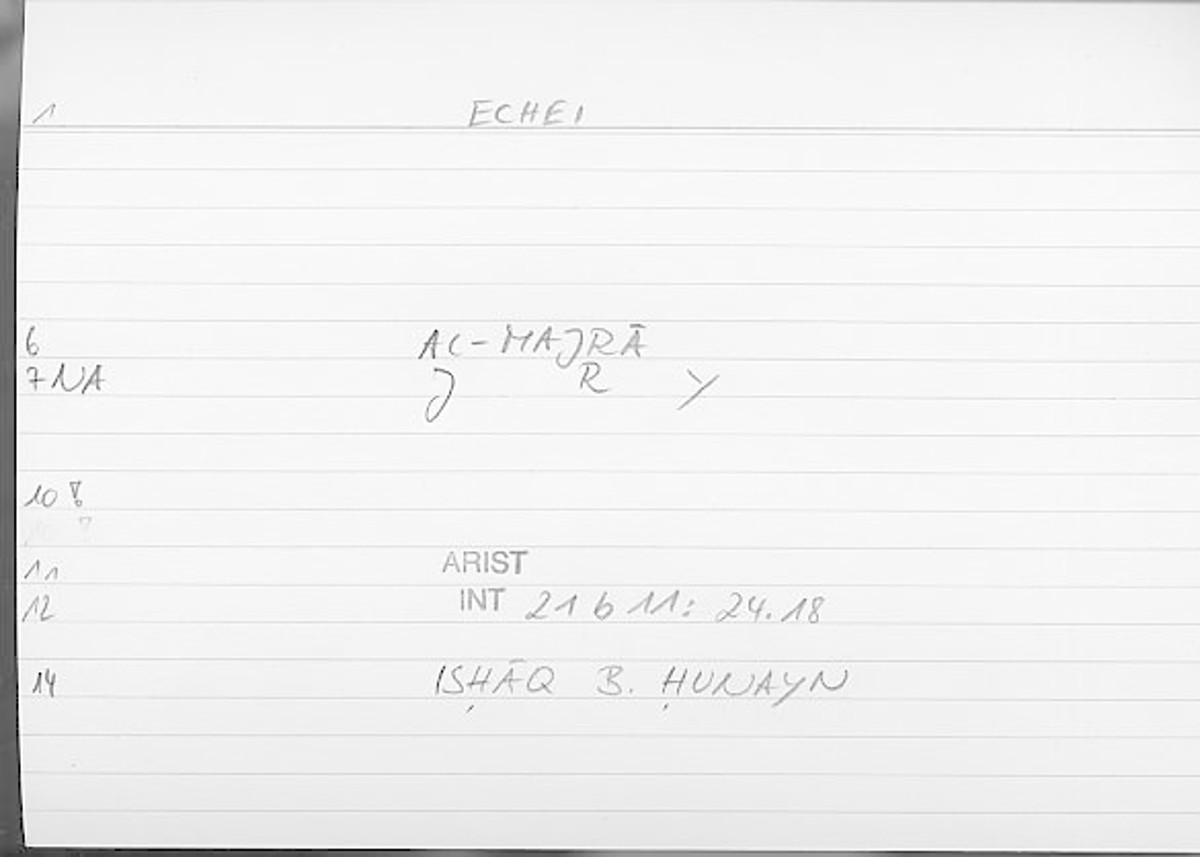 1 ECHEI
6 AL-MAJRĀ
7 NA J R Y
10
11 ARIST
12 INT 21 b 11: 24.18
14 ISḤĀQ B. ḤUNAYN